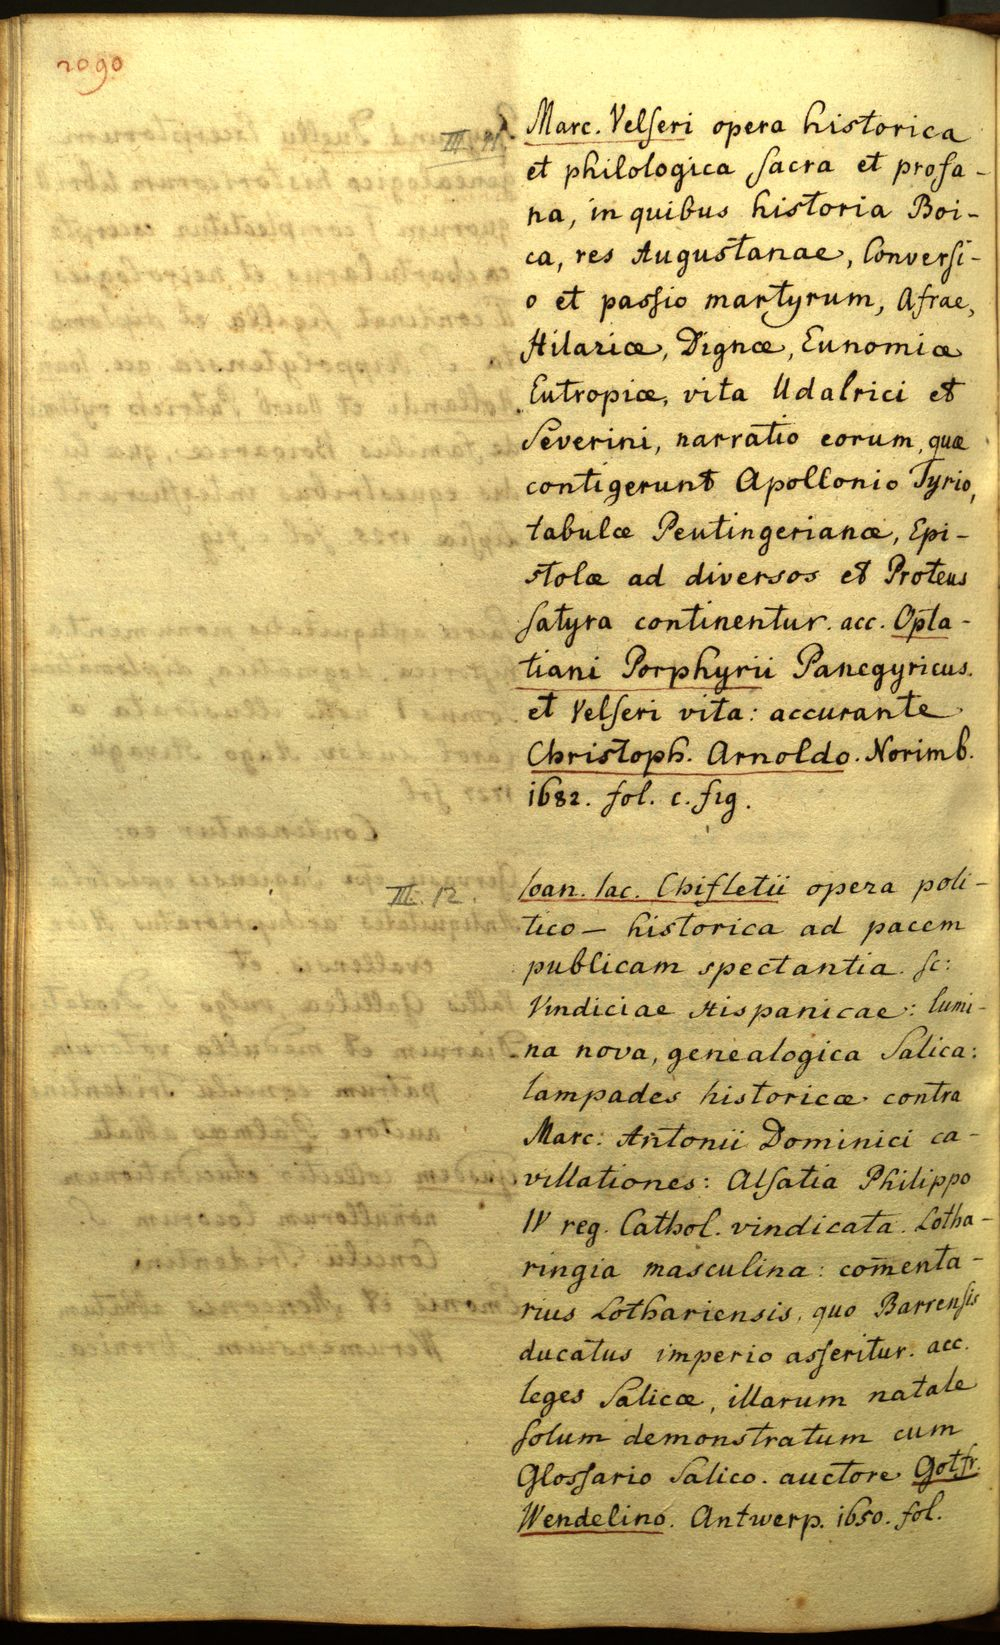 2090
III. 11.
Marc. Velseri opera historica
et philologica sacra et profa-
na, in quibus historia Boi-
ca, res Augustanae, Conversi-
o et passio martyrum, Afrae,
Hilariæ, Dignæ, Eunomiæ
Eutropiæ, vita Udalrici et
Severini, narratio eorum, quæ
contigerunt Apollonio Tyrio,
tabulæ Peutingerianæ, Epi-
stolæ ad diversos et Proteus
satyra continentur. acc. Opta-
tiani Porphyrii Panegyricus.
et Velseri vita: accurante
Christoph. Arnoldo. Norimb.
1682. fol. c. fig.
III. 12.
Ioan. Iac. Chifletii opera poli-
tico-historica ad pacem
publicam spectantia. sc:
Vindiciae Hispanicae: lumi-
na nova, genealogica Salica:
lampades historicæ contra
Marc: Antonii Dominici ca-
villationes: Alsatia Philippo
IV reg. Cathol. vindicata. Lotha-
ringia masculina: com̄enta-
rius Lothariensis, quo Barrensis
ducatus imperio asseritur. acc.
leges Salicæ, illarum natale
solum demonstratum cum
Glossario Salico. auctore Gotfr.
Wendelino. Antwerp. 1650. fol.